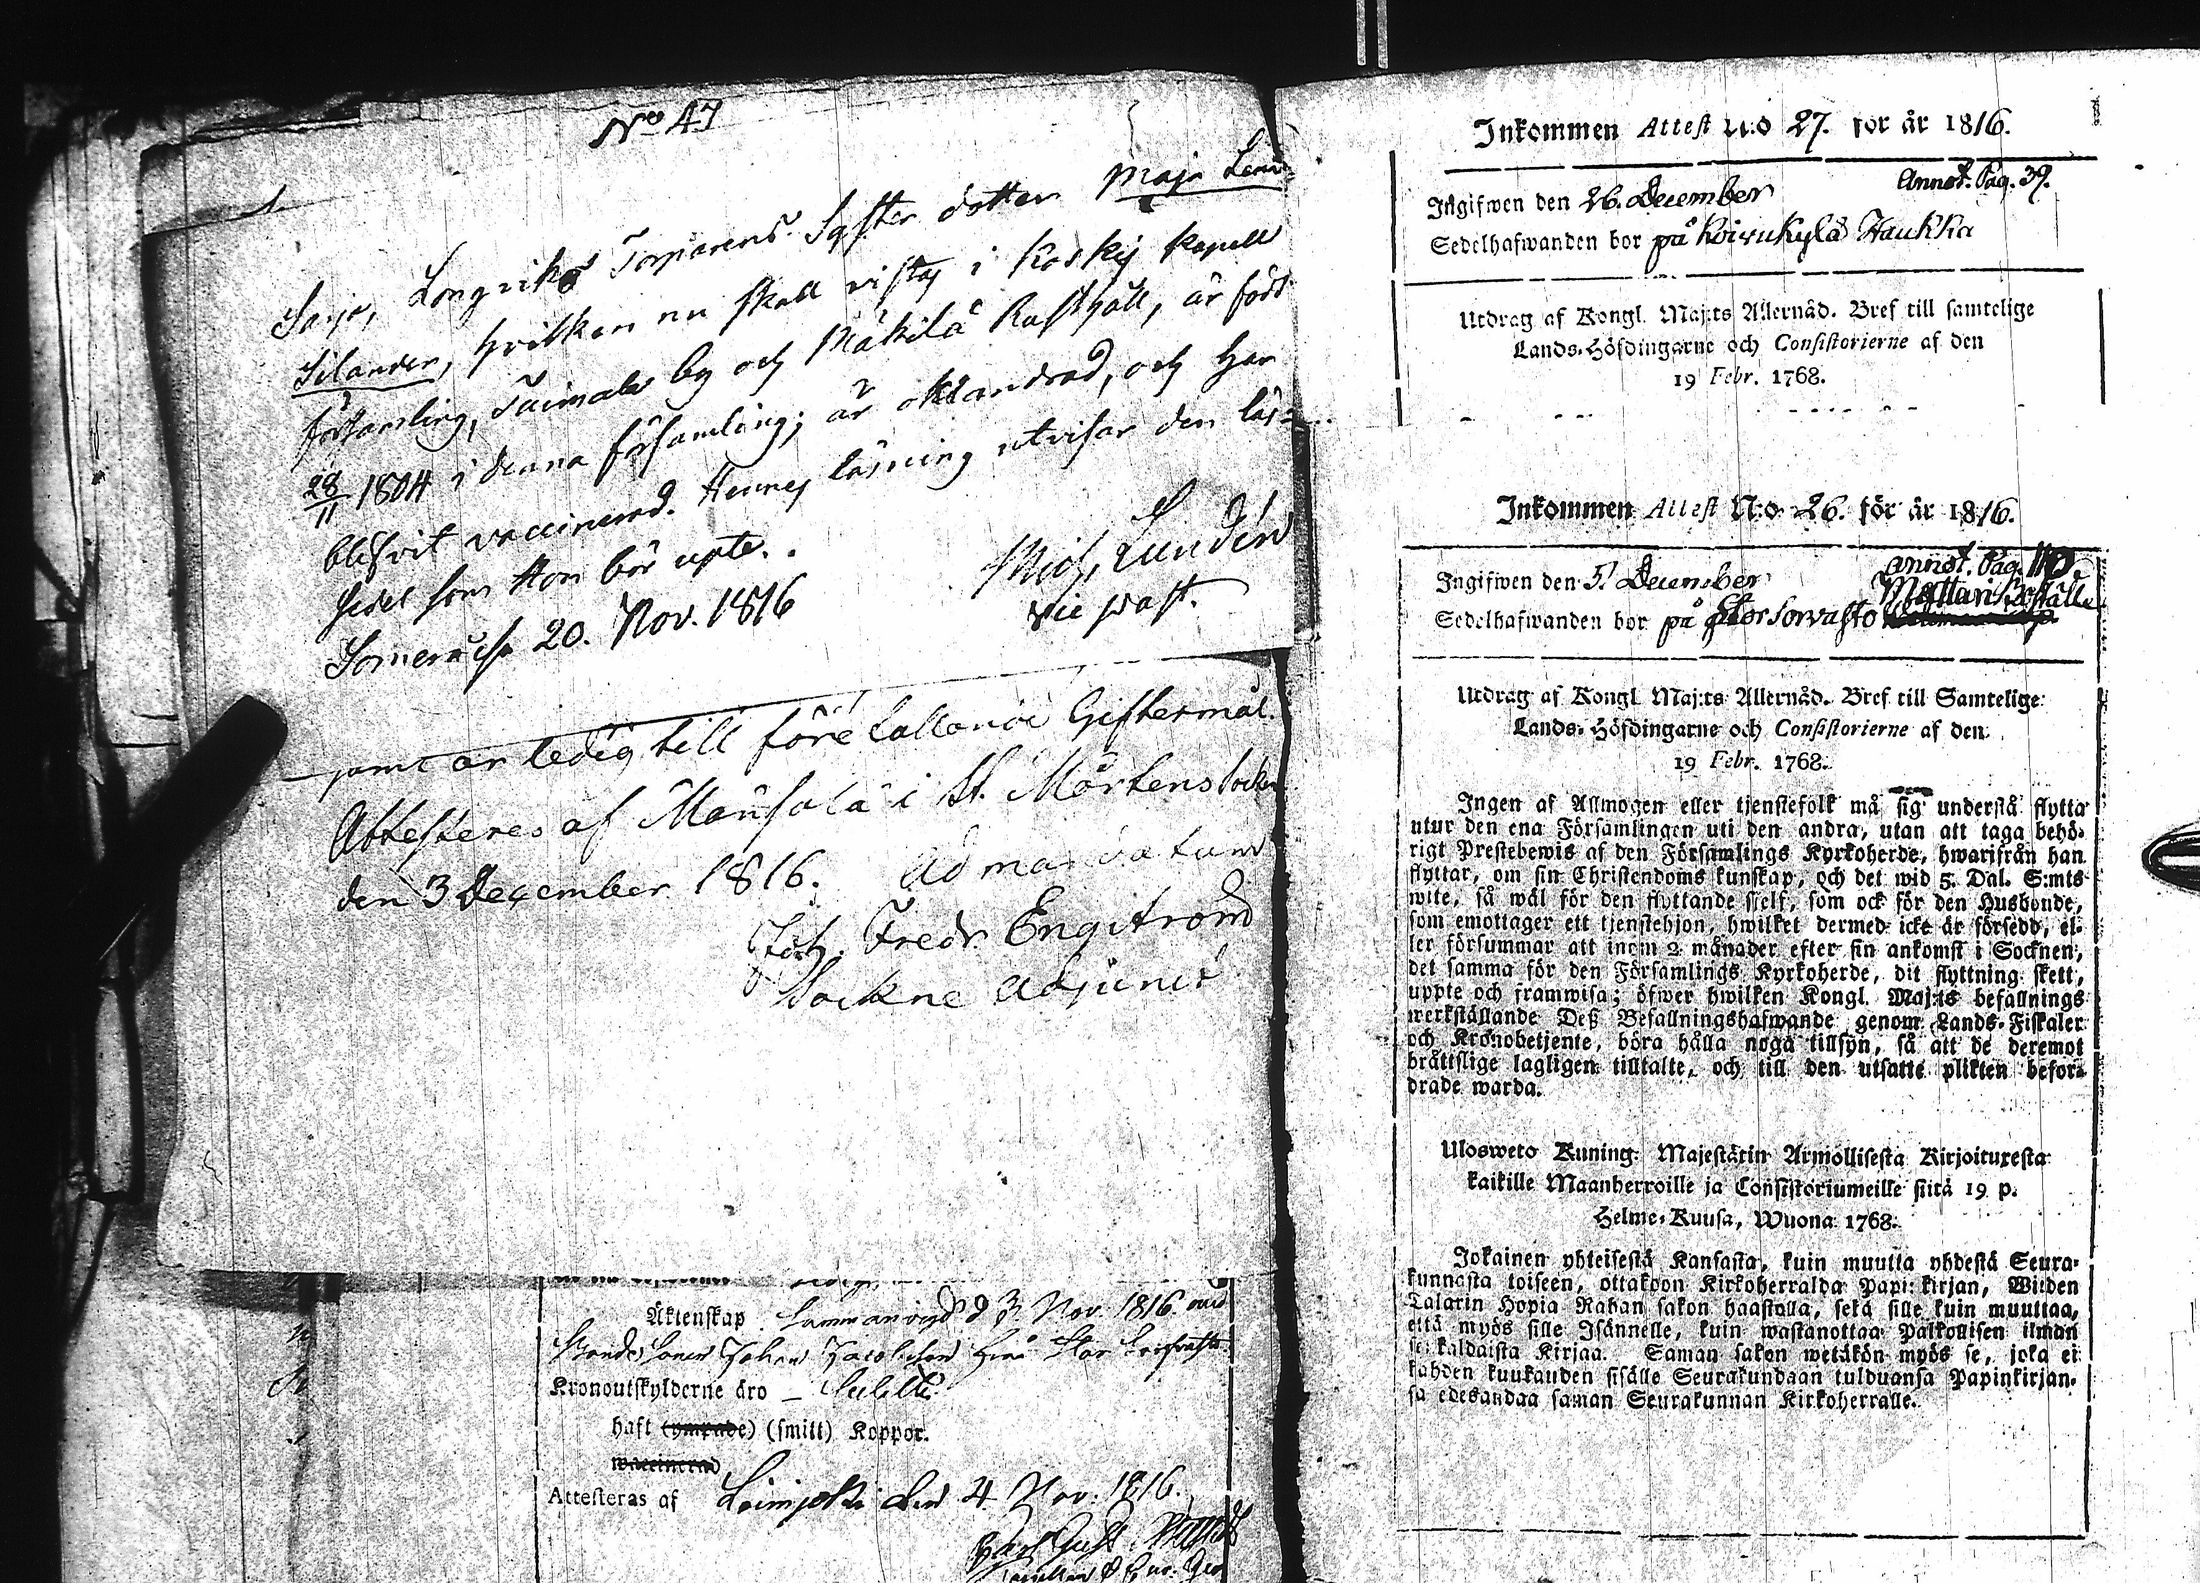 No 47
Torparens Syster dotter Maja
Silander, hvilken nu skall vistas i Koskis kapell
församling, Tuimala by och Mäkilä Rusthåll, är född
28/11 1804 i denna församling; är oklandrad, och har
blifvit vaccinerad. Hennes läsning utvisar den läs-
sedel som Hon bör upte.
20. Nov. 1816
Mich. Lundén
vice past.
samt är ledig till före fallande Giftermål.
Attesteres af i St. Mårtens Socken
den 3 December 1816. Ad mandatum
Joh. Fredr. Engström
Sockne Adjunct
Äktenskap. Sammanvigd d 3 Nov. 1816 med
Bonde Sonen Johan Jacobsson från Stor
Kronoutskylderne äro
haft (ympade) (smitt) Koppor.
waccinerad
Attesteras af Loimjoki den 4 Nov. 1816.
Carl Gust.
Inkommen Attest N:o 27. för år 1816.
Annot. Pag. 39.
Ingifwen den 26. December
Sedelhafwanden bor på Koivukylä Haukka
Utdrag af Kongl. Maj:ts Allernåd. Bref till samtelige
Lands-Höfdingarne och Consistorierne af den
19 Febr. 1768.
Inkommen Attest N:o 26. för år 1816.
Annot. Pag. 110
Ingifwen den 5. December
Mattari
Sedelhafwanden bor på Stor Sorvasto
Utdrag af Kongl. Maj:ts Allernåd. Bref till Samtelige
Lands-Höfdingarne och Consistorierne af den
19 Febr. 1768.
Ingen af Allmogen eller tjenstefolk må sig understå flytta
utur den ena Församlingen uti den andra, utan att taga behö-
rigt Prestebewis af den Församlings Kyrkoherde, hwarifrån han
flyttar, om sin Christendoms kunskap, och det wid 5. Dal. S:mts
wite, så wäl för den flyttande sjelf, som ock för den Husbonde,
som emottager ett tjenstehjon, hwilket dermed icke är försedd, el-
ler försummar att inom 2 månader efter sin ankomst i Socknen,
det samma för den Församlings Kyrkoherde, dit flyttning skett,
uppte och framwisa; öfwer hwilken Kongl. Maj:ts befallnings
werkställande Deß Befallningshafwande genom Lands-Fiskaler
och Kronobetjente, böra hålla noga tillsyn, så att de deremot
bråttslige lagligen tilltalte, och till den utsatte plikten befor-
drade warda.
Ulosweto Kuning. Majestätin Armollisesta Kirjoituxesta
kaikille Maanherroille ja Consistoriumeille siitä 19 p.
Helme-Kuusa, Wuona 1768.
Jokainen yhteisestä Kansasta, kuin muutta yhdestä Seura-
kunnasta toiseen, ottakoon Kirkoherralda Papin kirjan, Wiiden
Talarin Hopia Rahan sakon haastolla, sekä sille kuin muuttaa,
että myös sille Isännelle, kuin wastanottaa Palkollisen ilman
sen kaldaista Kirjaa. Saman sakon wetäkön myös se, joka ei
kahden kuukauden sisälle Seurakundaan tulduansa Papinkirjan-
sa edesandaa saman Seurakunnan Kirkoherralle.